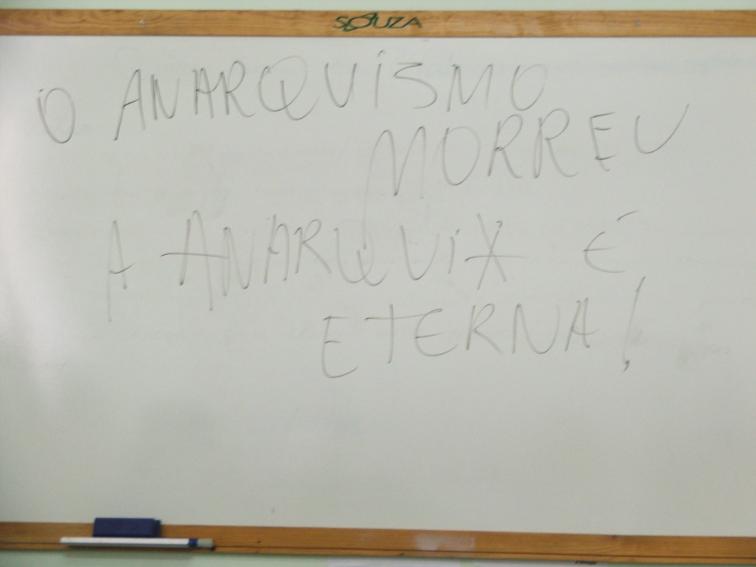 SOUZA
O ANARQUISMO
MORREU
A ANARQUIA É
ETERNA!